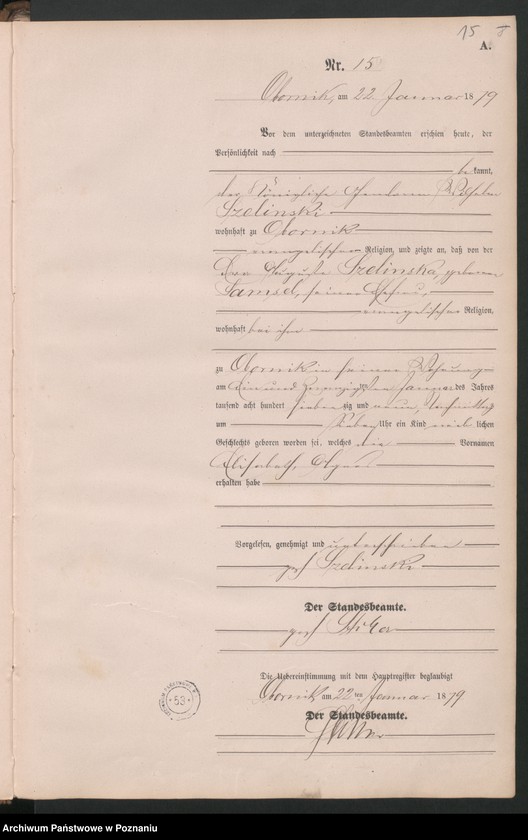 15
A.
Nr. 15
Obornik, am 22 Januar 1879
Vor dem unterzeichneten Standesbeamten erschien heute, der
Persönlichkeit nach
bekannt,
der Königliche Gendarm Wilhelm
Szelinski
wohnhaft zu Obornik
evangelischer Religion, und zeigte an, daß von der
Eva Auguste Szelinska, geborene
Samsel, seiner Ehefrau,
evangelischer Religion,
wohnhaft bei ihm
zu Obornik in seiner Wohnung
am Ein und Zwanzigsten Januar des Jahres
tausend acht hundert siebenzig und neun, Nachmittags
um sieben Uhr ein Kind weiblichen
Geschlechts geboren worden sei, welches die Vornamen
Elisabeth, Agnes
erhalten habe
Vorgelesen, genehmigt und unterschrieben
gez Szelinski
Der Standesbeamte.
gez
Die Uebereinstimmung mit dem Hauptregister beglaubigt
Obornik am 22ten Januar 1879
Der Standesbeamte.
53
Archiwum Państwowe w Poznaniu